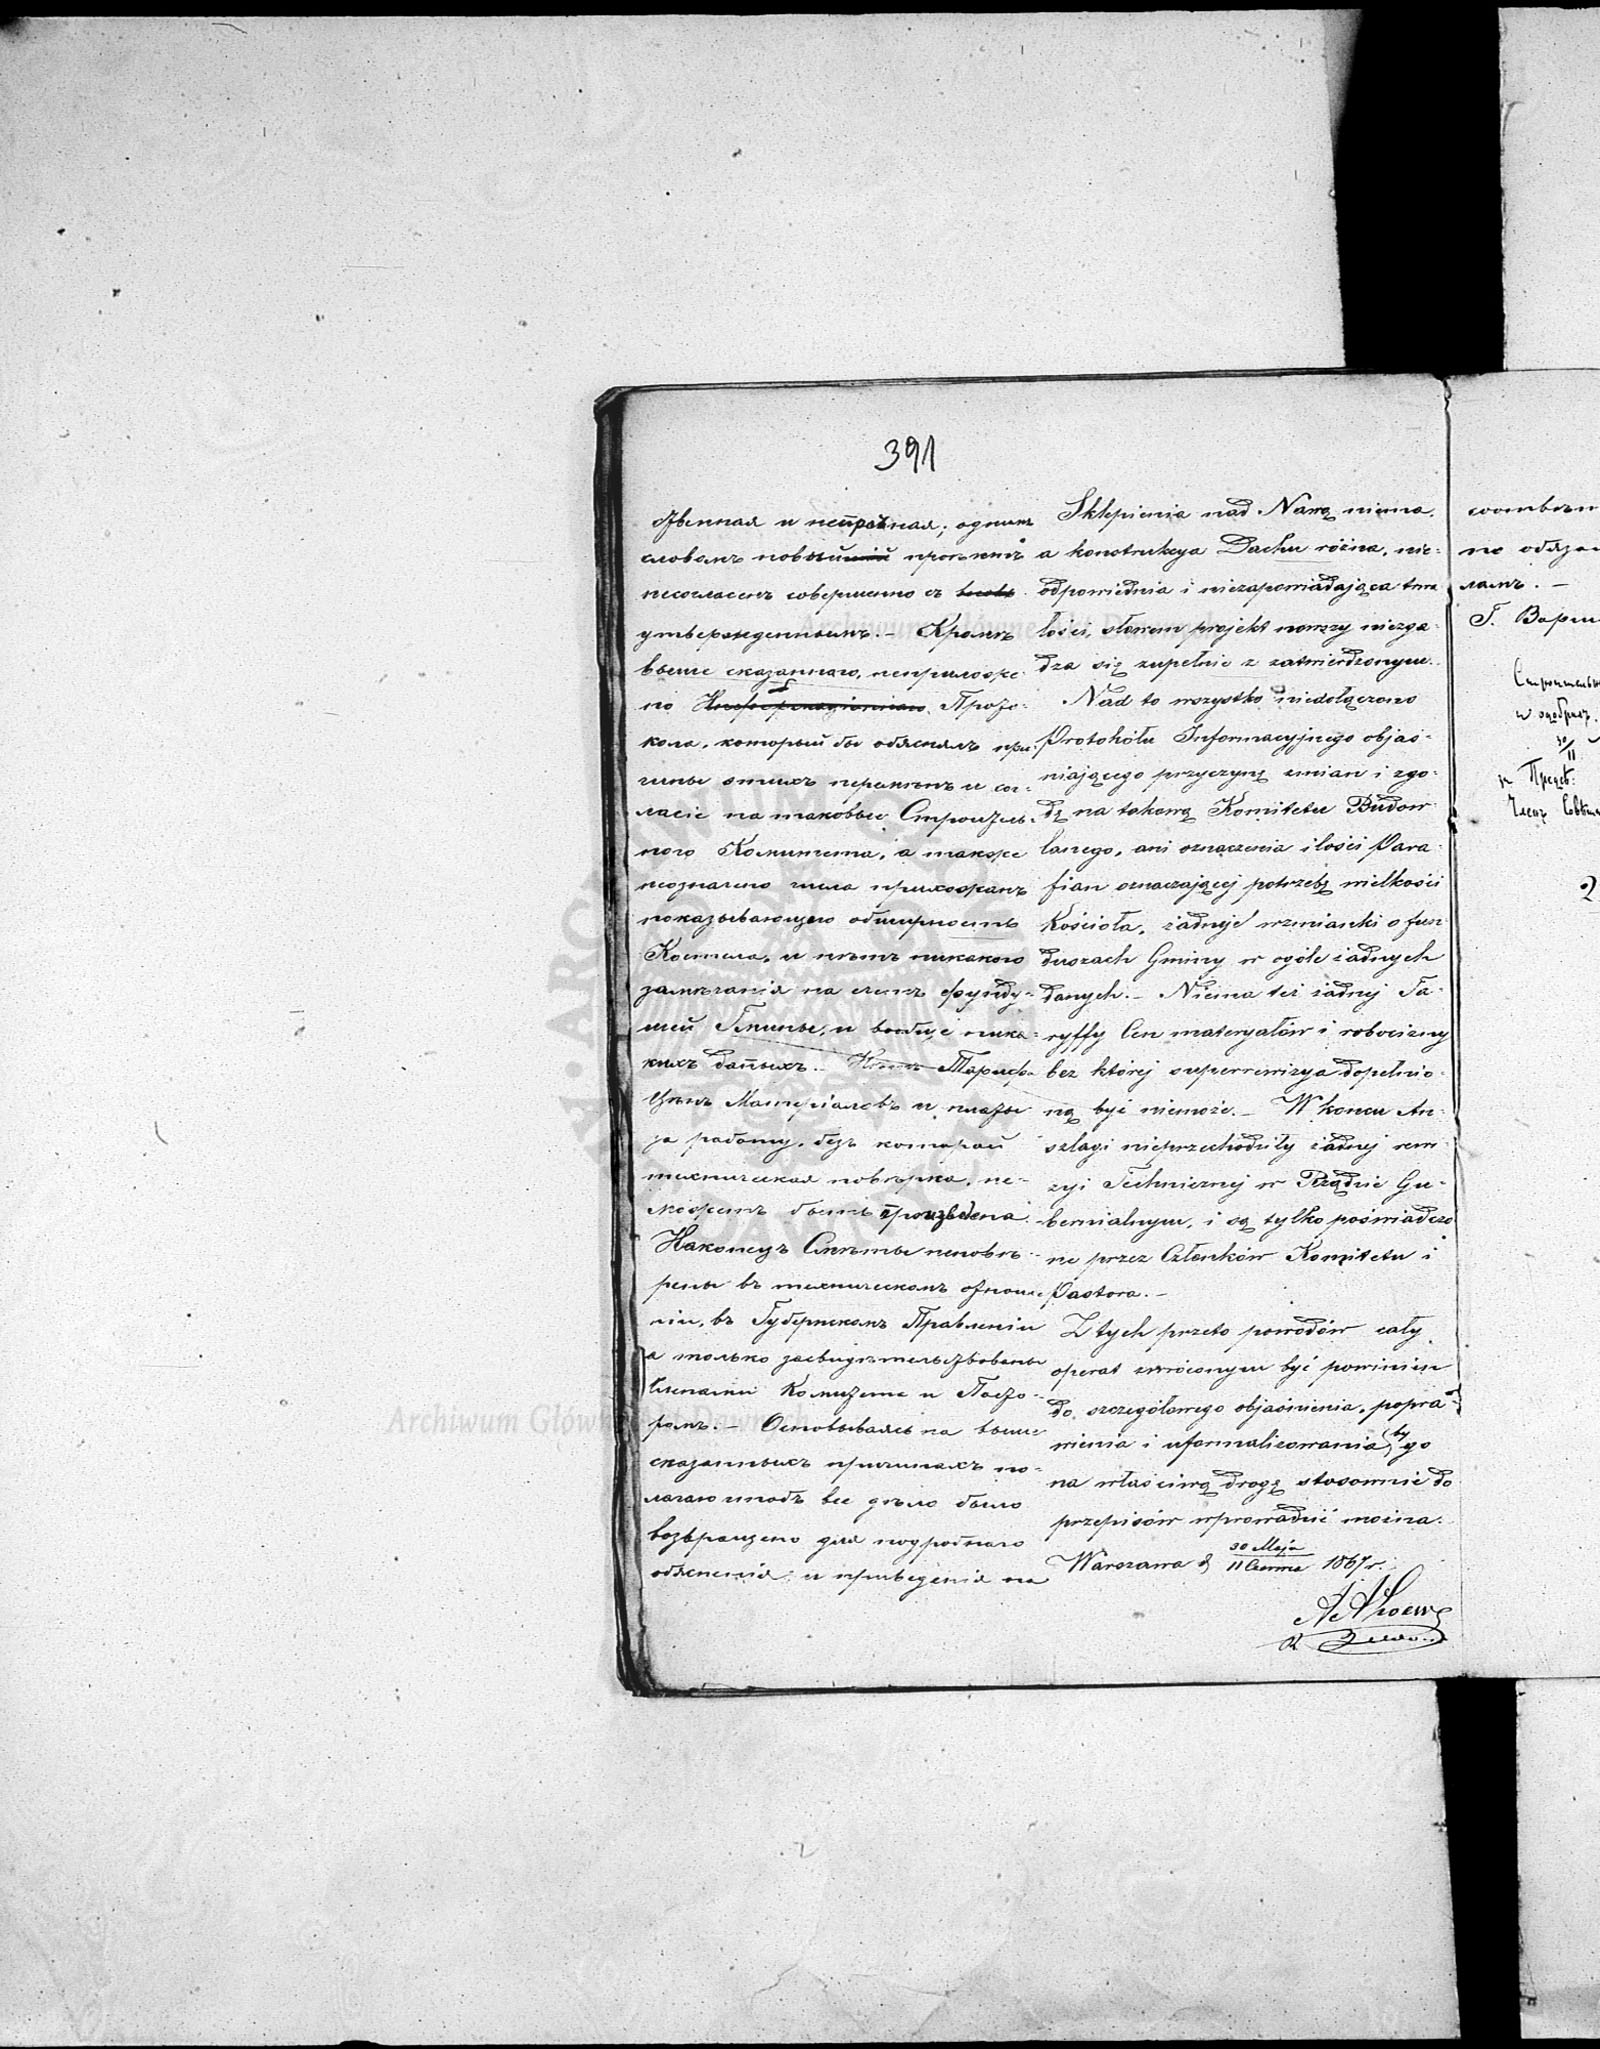 391
ственная и непрочная; однимъ
словомъ новый проэктъ
несогласенъ совершенно съ
утвержденнымъ. – Кромѣ
выше сказаннаго, неприложе-
но Протo-
кола, который бы объяснялъ при-
чины этихъ перемѣнъ и сог-
ласіе на таковые Строитель-
наго Комитета, а также
неозначено числа прихожанъ
показывающаго обширность
Костела, и нѣтъ никакого
замѣчанія на счетъ фунду-
шей Гмины, и вообще ника-
кихъ данныхъ. Тарифы
Цѣнъ Матеріаловъ и платы
за работу, безъ которой
техническая повѣрка, не-
можетъ быть произведена.
Наконецъ Смѣты непoвѣ-
рены въ техническомъ отноше-
ніи, въ Губернскомъ Правленіи
а только засвидѣтельствованы
Членами Комитета и Пасто-
ромъ. – Основываясь на выше
сказанныхъ причинахъ по-
лагаю чтобъ все дѣло было
возвращено для подробнаго
объясненія и приведенія на
Sklepienia nad Nawą niema,
a konstrukcya Dachu różna, nie-
odpowiednia i niezapowiadająca trwa
łości, słowem projekt nowszy niezga-
dza się zupełnie z zatwierdzonym.
Nad to wszystko niedołączono
Protokółu Informacyjnego objaś-
niającego przyczynę zmian i zgo-
dę na takową Komitetu Budow-
lanego, ani oznaczenia ilości Para-
fian oznaczającej potrzebę wielkości
Kościoła, żadnej wzmianki o fun-
duszach Gminy w ogóle żadnych
danych. – Niema też żadnej Ta-
ryffy Cen materyałów i robocizny
bez której superrewizya dopełnio-
ną być niemoże. – W końcu An-
szlagi nieprzechodziły żadnej rewi-
zyi Technicznej w Rządzie Gu-
bernialnym, i są tylko poświadczo
ne przez Członków Komitetu i
Pastora. –
Z tych przeto powodów cały
operat zwróconym być powinien
do szczegółowego objaśnienia, popra-
wienia i uformalizowania by go
na właściwą drogę stosownie do
przepisów wprowadzić można.
Warszawa d 30 Maja
11 Czerwca 1867 r.
соответ
но обяза
ламъ. –
Г. Варш